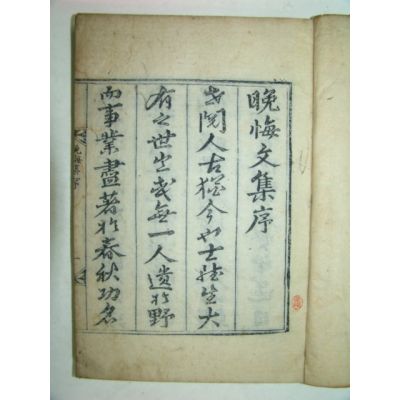 晩悔文集序
閱人古猶今也士雖生大
有之世或無一人遺於野
而事業盡著於春秋功名
晩悔集序